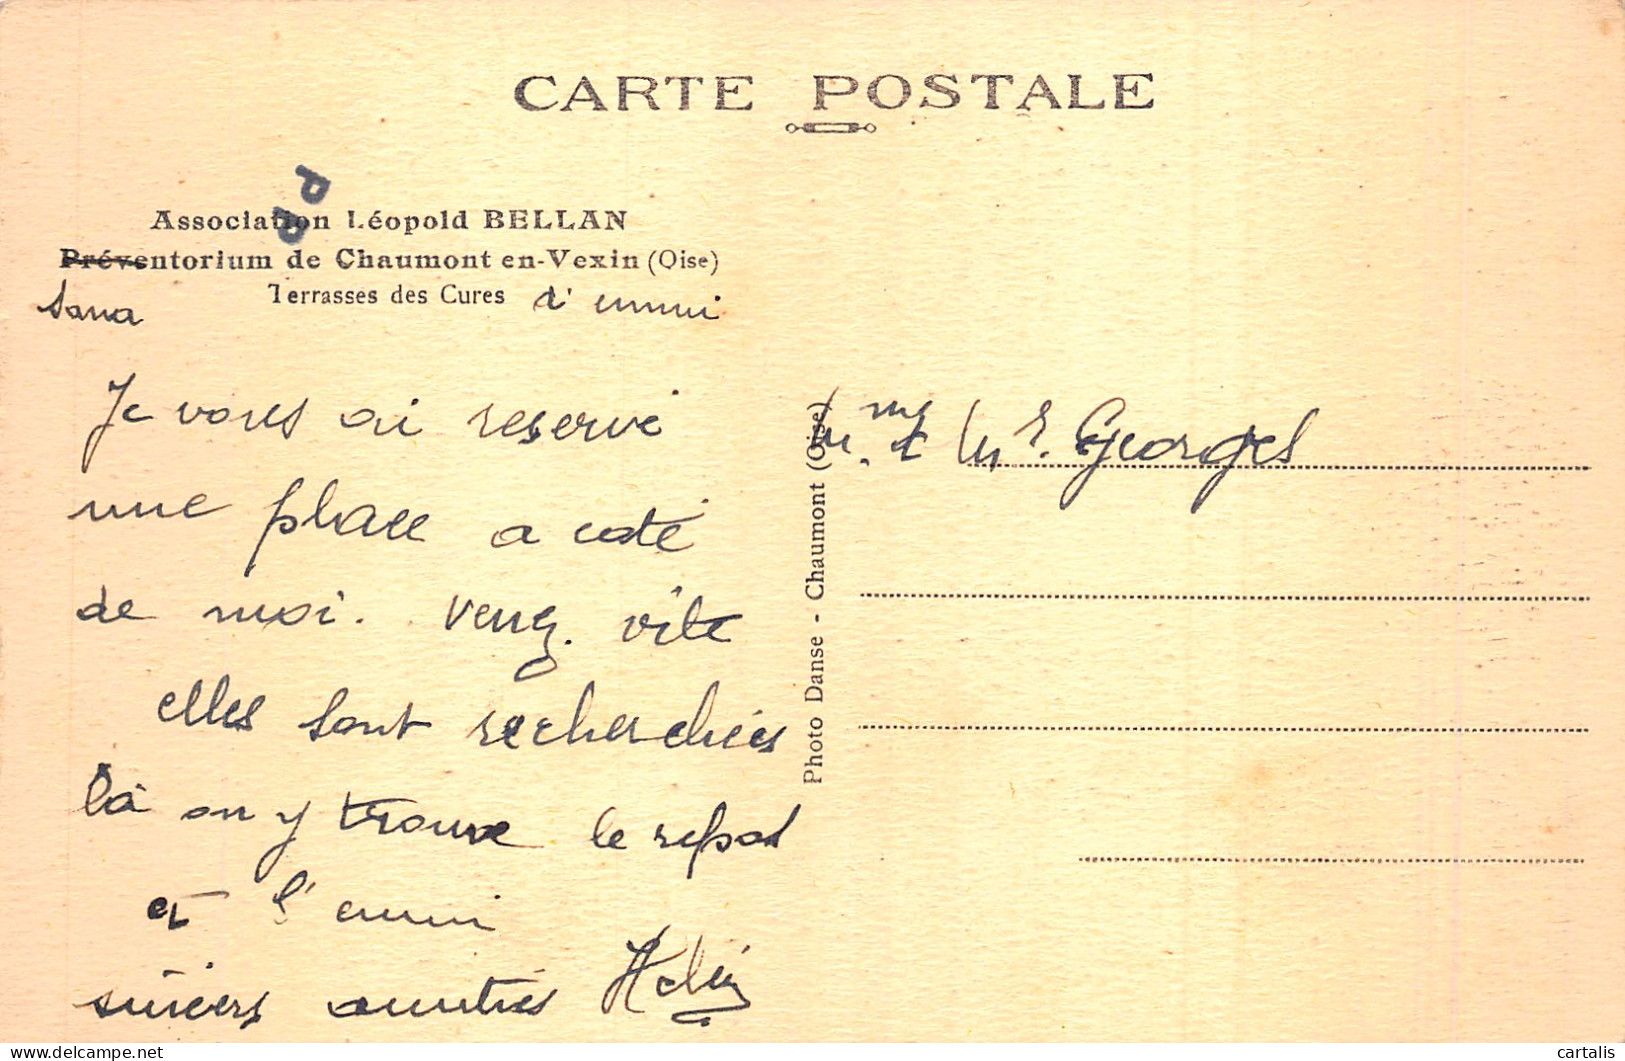 CARTE POSTALE
PP
Association Léopold BELLAN
Préventorium de Chaumont en-Vexin (Oise)
Terrasses des Cures d'ennui
Sana
Je vous ai reservé
une place a coté
de moi. Venez. vite
elles sont recherchées
là on y trouve le repos
et l'ennui
sincers amitiés
Mme et Mr. Georges
Photo Danse - Chaumont (Oise)
delcampe.net
cartalis